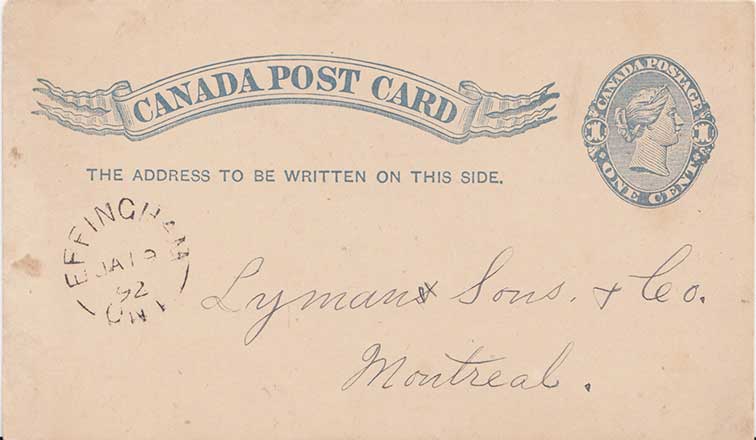 CANADA POST CARD
CANADA POSTAGE
1 1
ONE CENT
THE ADDRESS TO BE WRITTEN ON THIS SIDE.
EFFINGHAM
JA 19
92
ONT
Lyman Sons. & Co.
Montreal.